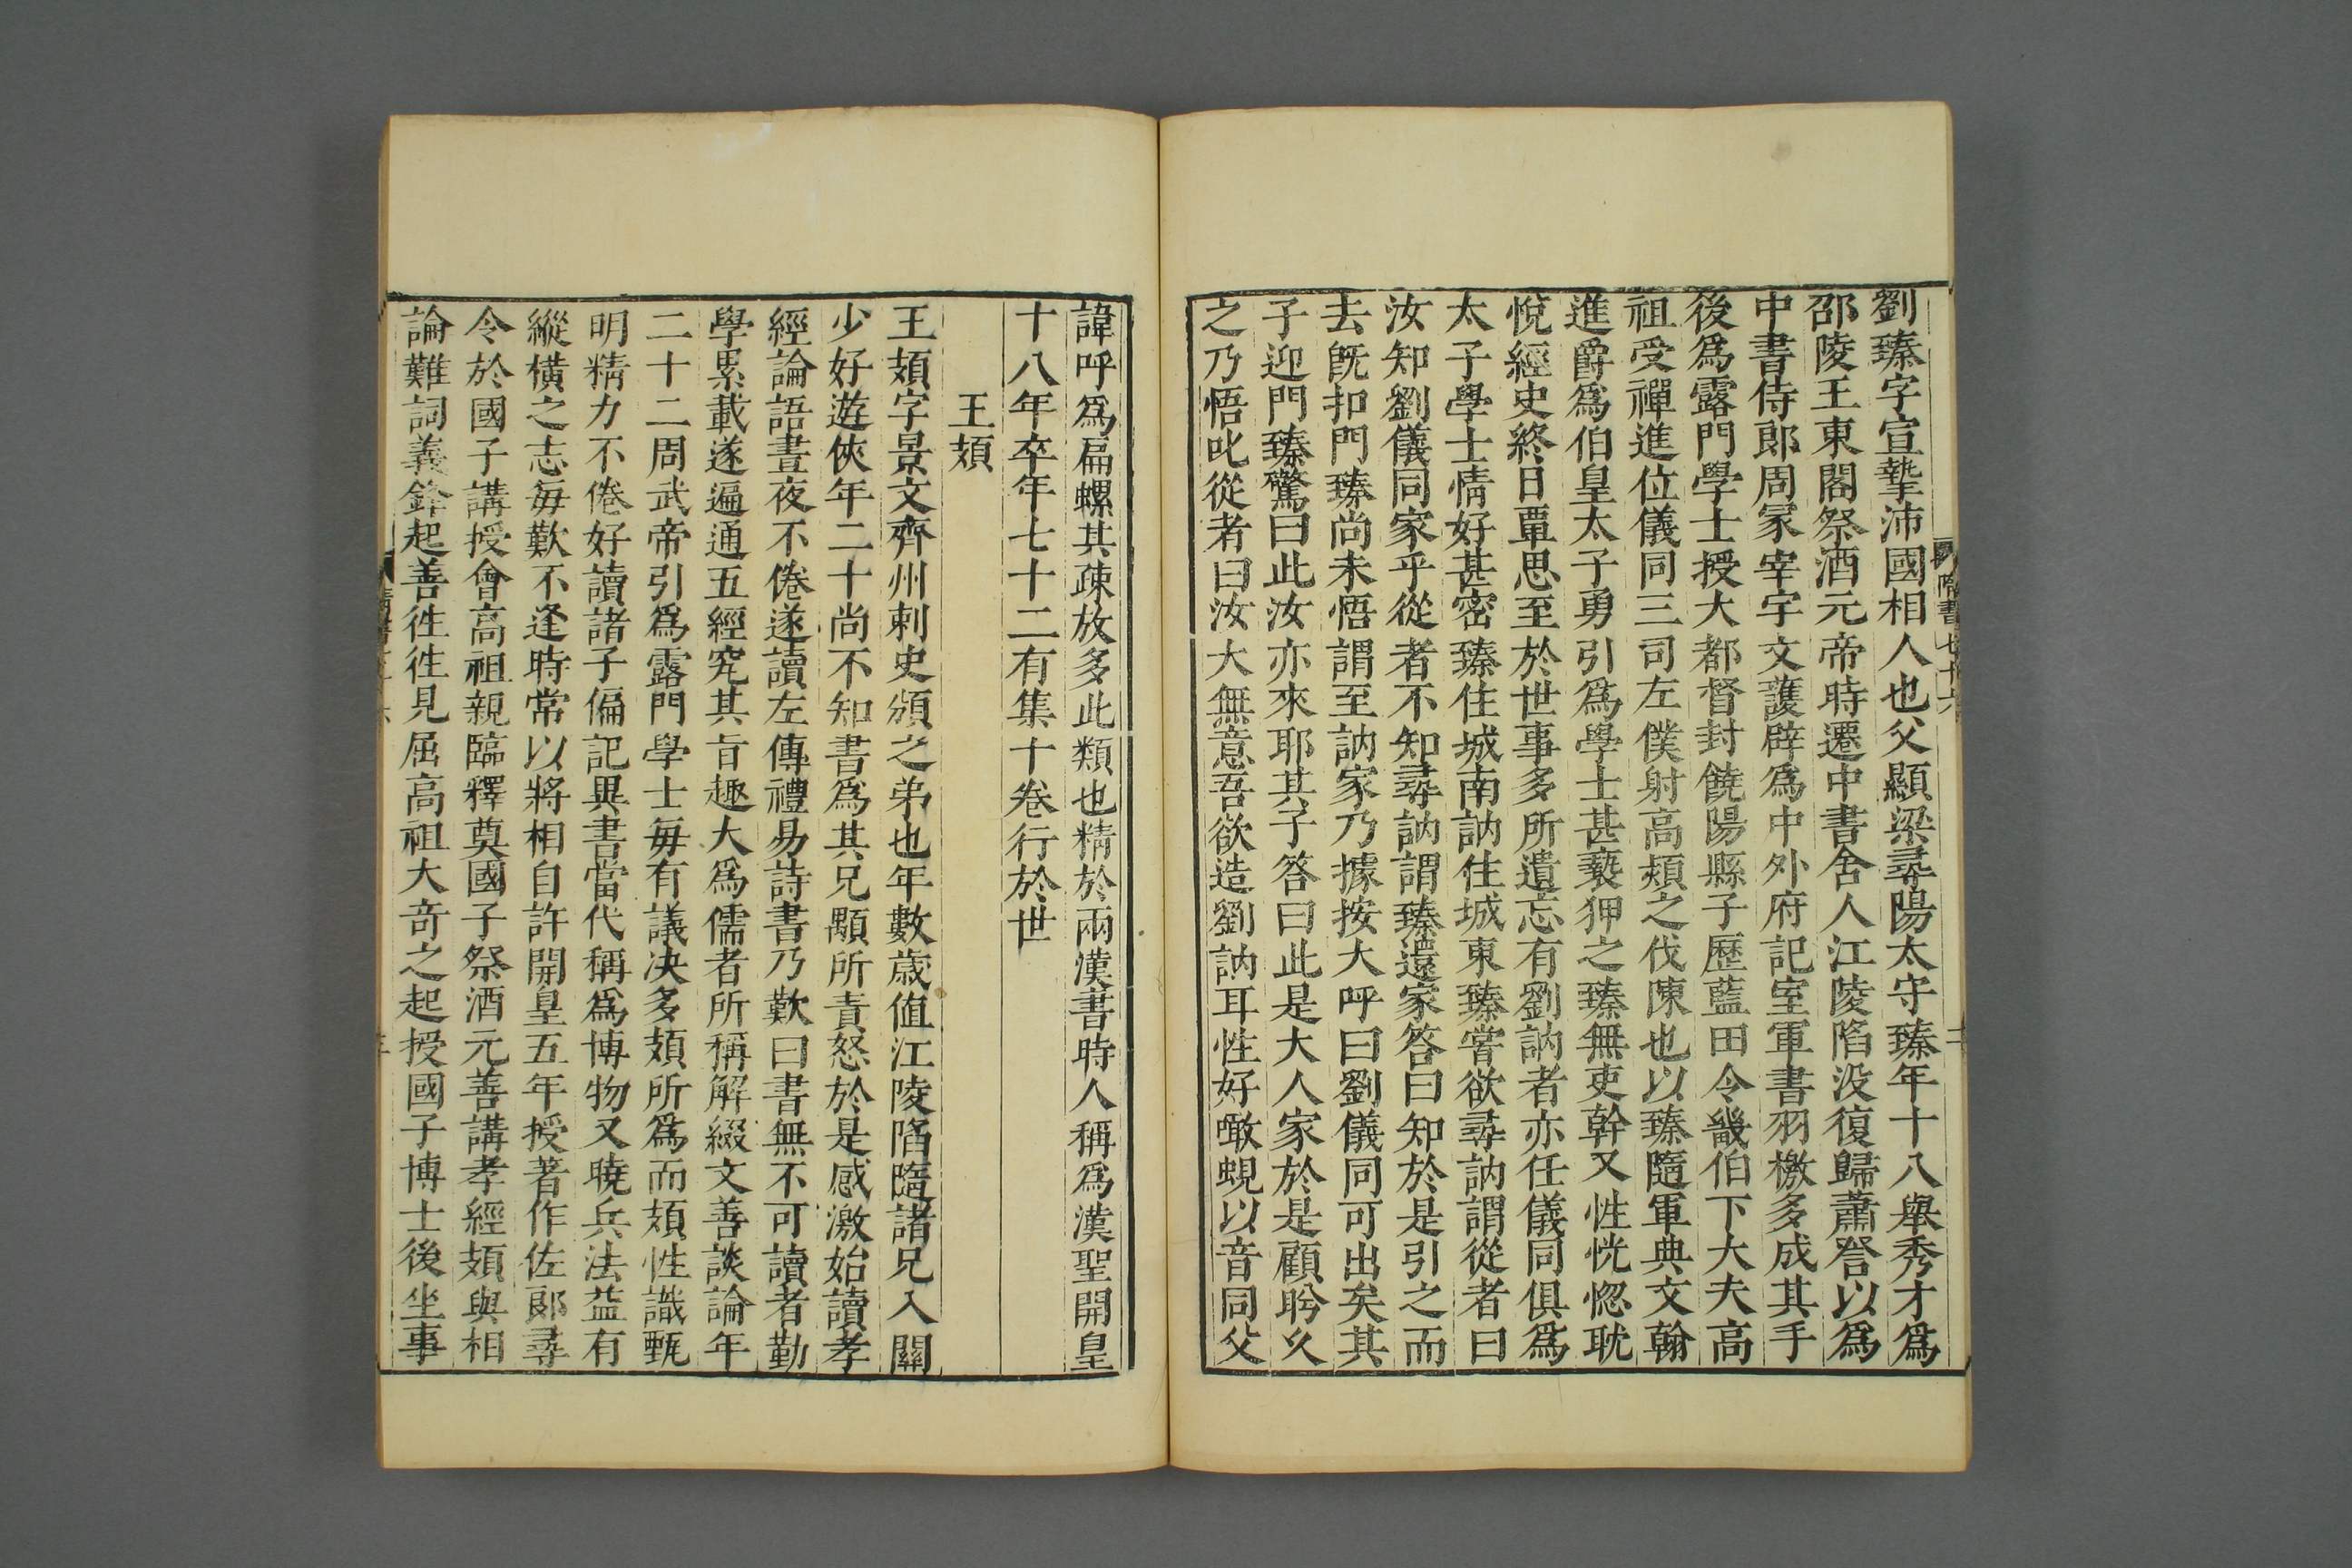 劉臻字宣摯沛國相人也父顯梁尋陽太守臻年十八舉秀才爲
邵陵王東閣祭酒元帝時遷中書舍人江陵陷没復歸蕭詧以爲
中書侍郎周冢宰宇文護辟爲中外府記室軍書羽檄多成其手
後爲露門學士授大都督封饒陽縣子歷藍田令畿伯下大夫高
祖受禪進位儀同三司左僕射高熲之伐陳也以臻隨軍典文翰
進爵爲伯皇太子勇引爲學士甚褻狎之臻無吏幹又性恍惚耽
悅經史終日覃思至於世事多所遺忘有劉訥者亦任儀同俱爲
太子學士情好甚密臻住城南訥住城東臻嘗欲尋訥謂從者曰
汝知劉儀同家乎從者不知尋訥謂臻還家答曰知於是引之而
去旣扣門臻尚未悟謂至訥家乃據按大呼曰劉儀同可出矣其
子迎門臻驚曰此汝亦來耶其子答曰此是大人家於是顧盻久
之乃悟叱從者曰汝大無意吾欲造劉訥耳性好噉蜆以音同父
隋書七十六
二
諱呼爲扁螺其疎放多此類也精於兩漢書時人稱爲漢聖開皇
十八年卒年七十二有集十卷行於世
王頍
王頍字景文齊州刺史頒之弟也年數歲值江陵陷隨諸兄入關
少好遊俠年二十尚不知書爲其兄顒所責怒於是感激始讀孝
經論語晝夜不倦遂讀左傳禮易詩書乃歎曰書無不可讀者勤
學累載遂遍通五經究其旨趣大爲儒者所稱解綴文善談論年
二十二周武帝引爲露門學士每有議决多頍所爲而頍性識甄
明精力不倦好讀諸子偏記異書當代稱爲博物又曉兵法益有
縱橫之志每歎不逢時常以將相自許開皇五年授著作佐郎尋
令於國子講授會高祖親臨釋奠國子祭酒元善講孝經頍與相
論難詞義鋒起善徃徃見屈高祖大奇之起授國子博士後坐事